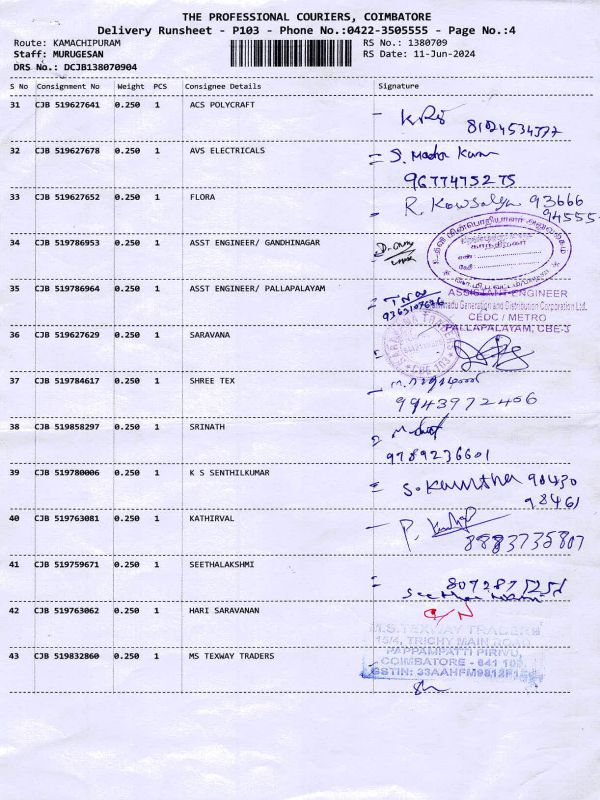 THE PROFESSIONAL COURIERS, COIMBATORE
Delivery Runsheet - P103 - Phone No.:0422-3505555 - Page No.:4
Route: KAMACHIPURAM RS No.: 1380709
Staff: MURUGESAN RS Date: 11-Jun-2024
DRS No.: DCJB138070904
S No Consignment No Weight PCS Consignee Details Signature
31 CJB 519627641 0.250 1 ACS POLYCRAFT
32 CJB 519627678 0.250 1 AVS ELECTRICALS
9677475275
33 CJB 519627652 0.250 1 FLORA R. Kowsalya 93666
94555-
34 CJB 519786953 0.250 1 ASST ENGINEER/ GANDHINAGAR
35 CJB 519786964 0.250 1 ASST ENGINEER/ PALLAPALAYAM
ASSISTANT ENGINEER
Generation and Distribution Corporation Ltd.
CEDC / METRO
PALLAPALAYAM, CBE-3
36 CJB 519627629 0.250 1 SARAVANA
37 CJB 519784617 0.250 1 SHREE TEX
9943972406
38 CJB 519858297 0.250 1 SRINATH
9789236601
39 CJB 519780006 0.250 1 K S SENTHILKUMAR
98430
98461
40 CJB 519763081 0.250 1 KATHIRVAL
8883735807
41 CJB 519759671 0.250 1 SEETHALAKSHMI
42 CJB 519763062 0.250 1 HARI SARAVANAN
M.S.TEXWAY TRADERS
15/4, TRICHY MAIN ROAD
PAPPAMPATTI PIRIVU,
43 CJB 519832860 0.250 1 MS TEXWAY TRADERS COIMBATORE - 641 10